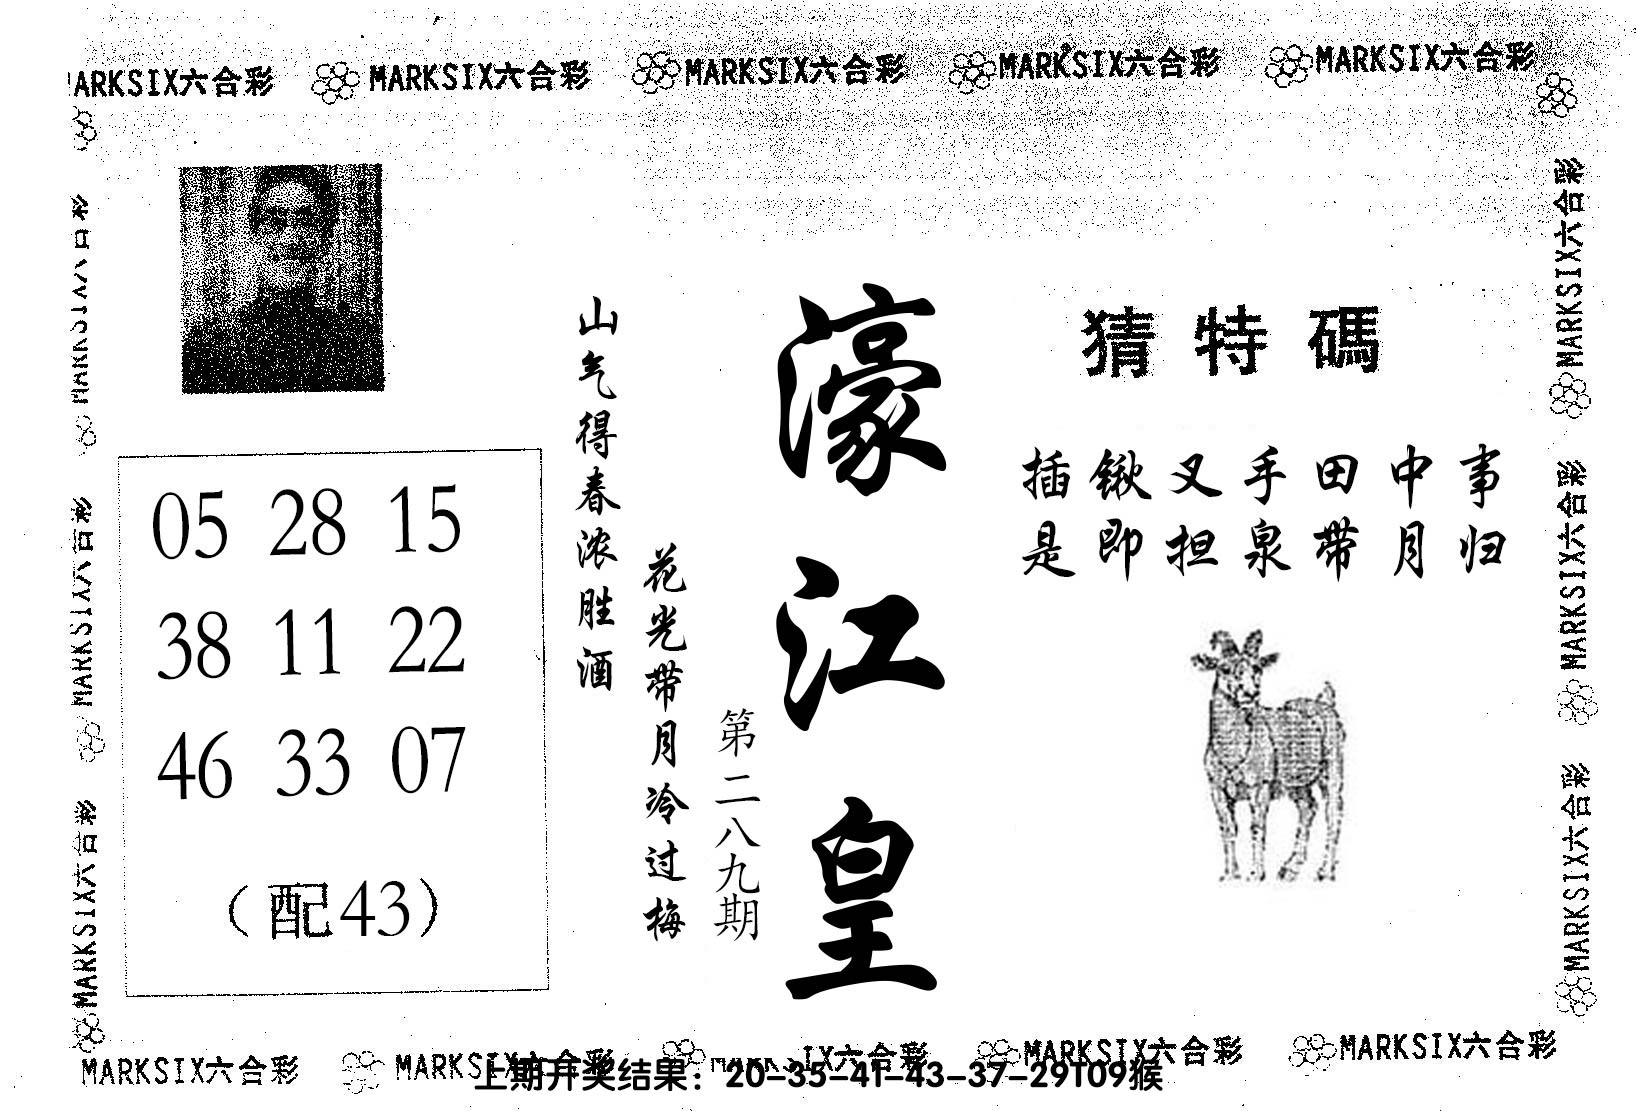 MARKSIX六合彩 MARKSIX六合彩 MARKSIX六合彩 MARKSIX六合彩 MARKSIX六合彩
猜特碼
插锹叉手田中事
是即担泉带月归
濠江皇
第二八九期
山气得春浓胜酒
花光带月冷过梅
05 28 15
38 11 22
46 33 07
（配43）
MARKSIX六合彩
MARKSIX六合彩
MARKSIX六合彩
MARKSIX六合彩
MARKSIX六合彩
MARKSIX六合彩
MARKSIX六合彩 MARKSIX六合彩 MARKSIX六合彩 MARKSIX六合彩 MARKSIX六合彩
上期开奖结果：20-35-41-43-37-29T09猴